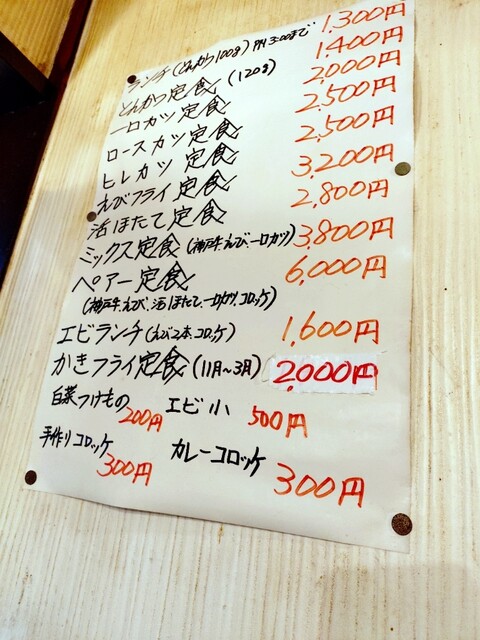 ランチ(とんかつ100g) PM 3:00まで 1,300円
とんかつ定食(120g) 1,400円
一口カツ定食 2,000円
ロースカツ定食 2,500円
ヒレカツ定食 2,500円
えびフライ定食 3,200円
活ほたて定食 2,800円
ミックス定食(神戸牛.えび.一口カツ) 3,800円
ペアー定食 6,000円
(神戸牛.えび.活ほたて.一口カツ.コロッケ)
エビランチ(えび2本.コロッケ) 1,600円
かきフライ定食(11月〜3月) 2,000円
白菜つけもの 200円 エビ小 500円
手作りコロッケ 300円 カレーコロッケ 300円